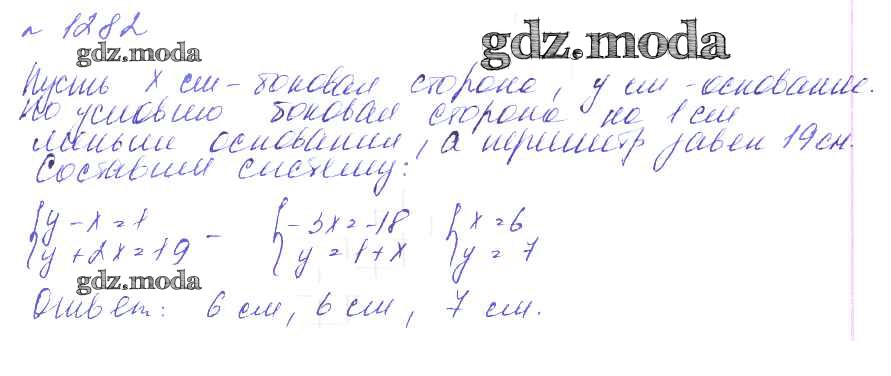 № 1282
gdz.moda
gdz.moda
Пусть x см - боковая сторона, y см - основание.
По условию боковая сторона на 1 см
меньше основания, а периметр равен 19 см.
Составим систему:
{ y - x = 1 - { -3x = -18 { x = 6
{ y + 2x = 19 { y = 1 + x { y = 7
gdz.moda
Ответ: 6 см, 6 см, 7 см.